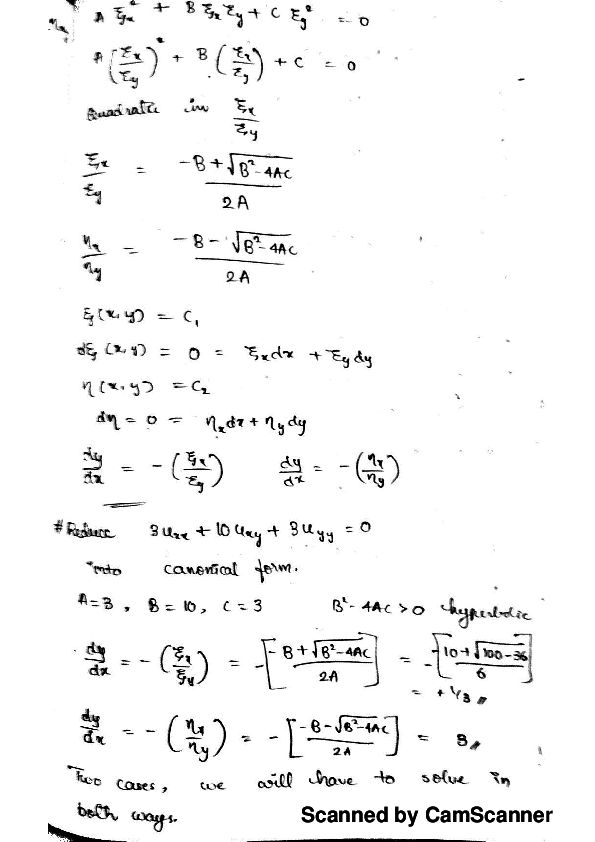 A ξx² + B ξx ξy + C ξy² = 0
A (ξx/ξy)² + B (ξx/ξy) + C = 0
Quadratic in ξx/ξy
ξx/ξy = (-B + √(B² - 4AC))/2A
ηx/ηy = (-B - √(B² - 4AC))/2A
ξ(x, y) = C₁
dξ(x, y) = 0 = ξx dx + ξy dy
η(x, y) = C₂
dη = 0 = ηx dx + ηy dy
dy/dx = -(ξx/ξy) dy/dx = -(ηx/ηy)
# Reduce 3uxx + 10uxy + 3uyy = 0
into canonical form.
A = 3, B = 10, C = 3 B² - 4AC > 0 hyperbolic
dy/dx = -(ξx/ξy) = -[(-B + √(B² - 4AC))/2A] = -[(-10 + √(100 - 36))/6]
= + 1/3 //
dy/dx = -(ηx/ηy) = -[(-B - √(B² - 4AC))/2A] = 3 //
Two cases, we will have to solve in
both ways.
Scanned by CamScanner